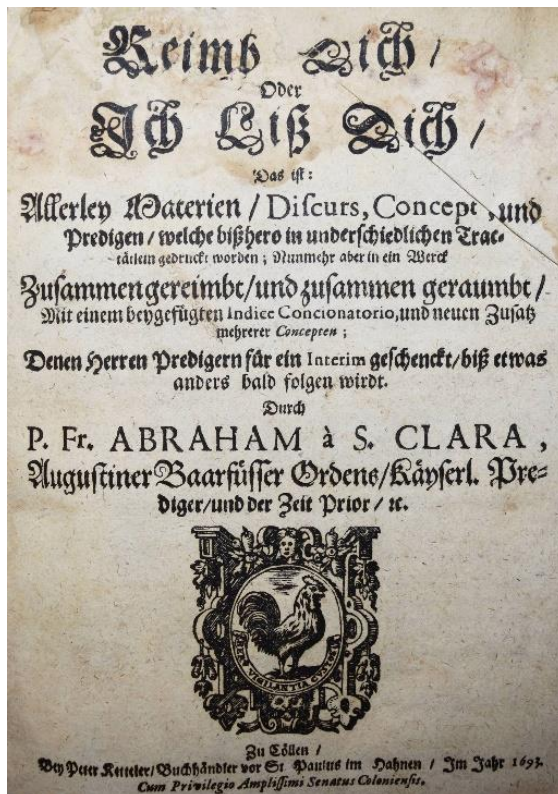 Reimb Dich /
Oder
Ich Liß Dich /
Das ist:
Allerley Materien / Discurs, Concept, und
Predigen / welche bißhero in underschiedlichen Trac-
tätlein gedruckt worden; Nunmehr aber in ein Werck
Zusammen gereimbt / und zusammen geraumbt /
Mit einem beygefügten Indice Concionatorio, und neuen Zusatz
mehrerer Concepten;
Denen Herren Predigern für ein Interim geschenckt / biß etwas
anders bald folgen wirdt.
Durch
P. Fr. ABRAHAM à S. CLARA,
Augustiner Baarfüsser Ordens / Käyserl. Pre-
diger / und der Zeit Prior / ꝛc.
VIGILANTIA CUSTOS
Zu Cöllen /
Bey Peter Ketteler / Buchhändler vor St. Paulus im Hahnen / Im Jahr 1693.
Cum Privilegio Amplissimi Senatus Coloniensis.